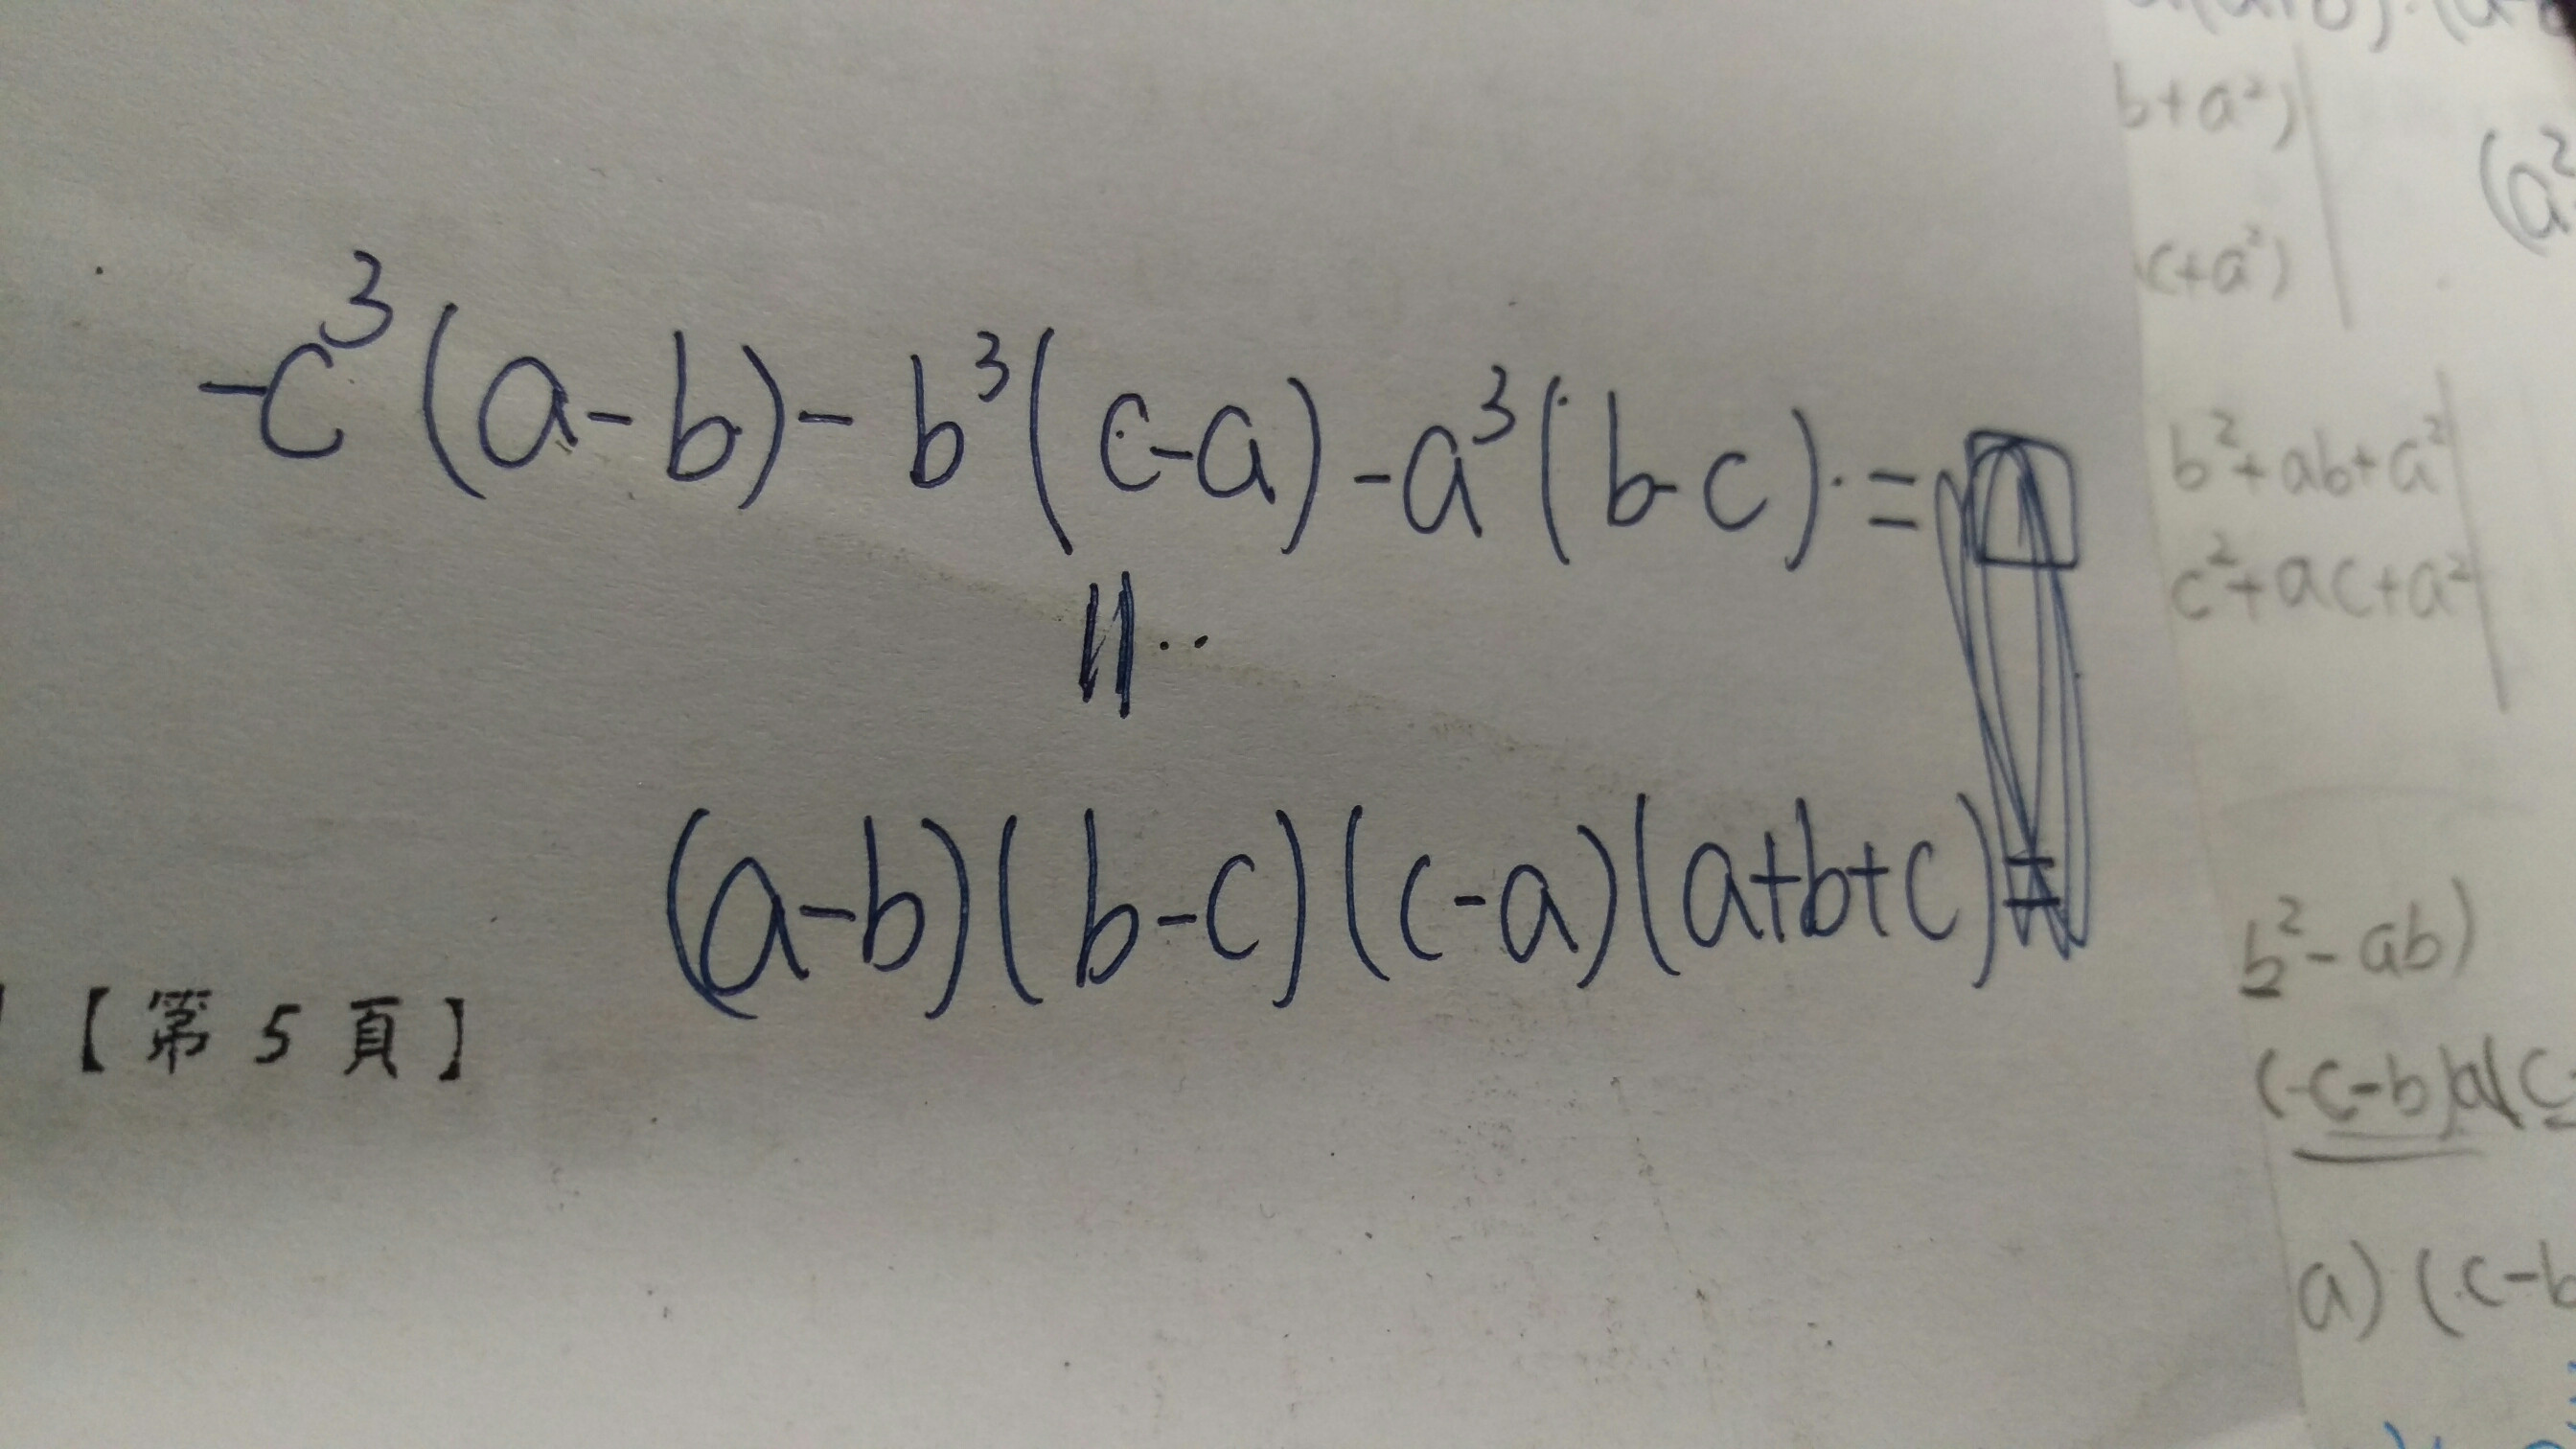 -c³(a-b)-b³(c-a)-a³(b-c)=
=
(a-b)(b-c)(c-a)(a+b+c)=
【第5頁】
b+a²)
c+a²)
(a²
b²+ab+a²
c²+ac+a²
b²-ab)
(-c-b)
a)(c-b